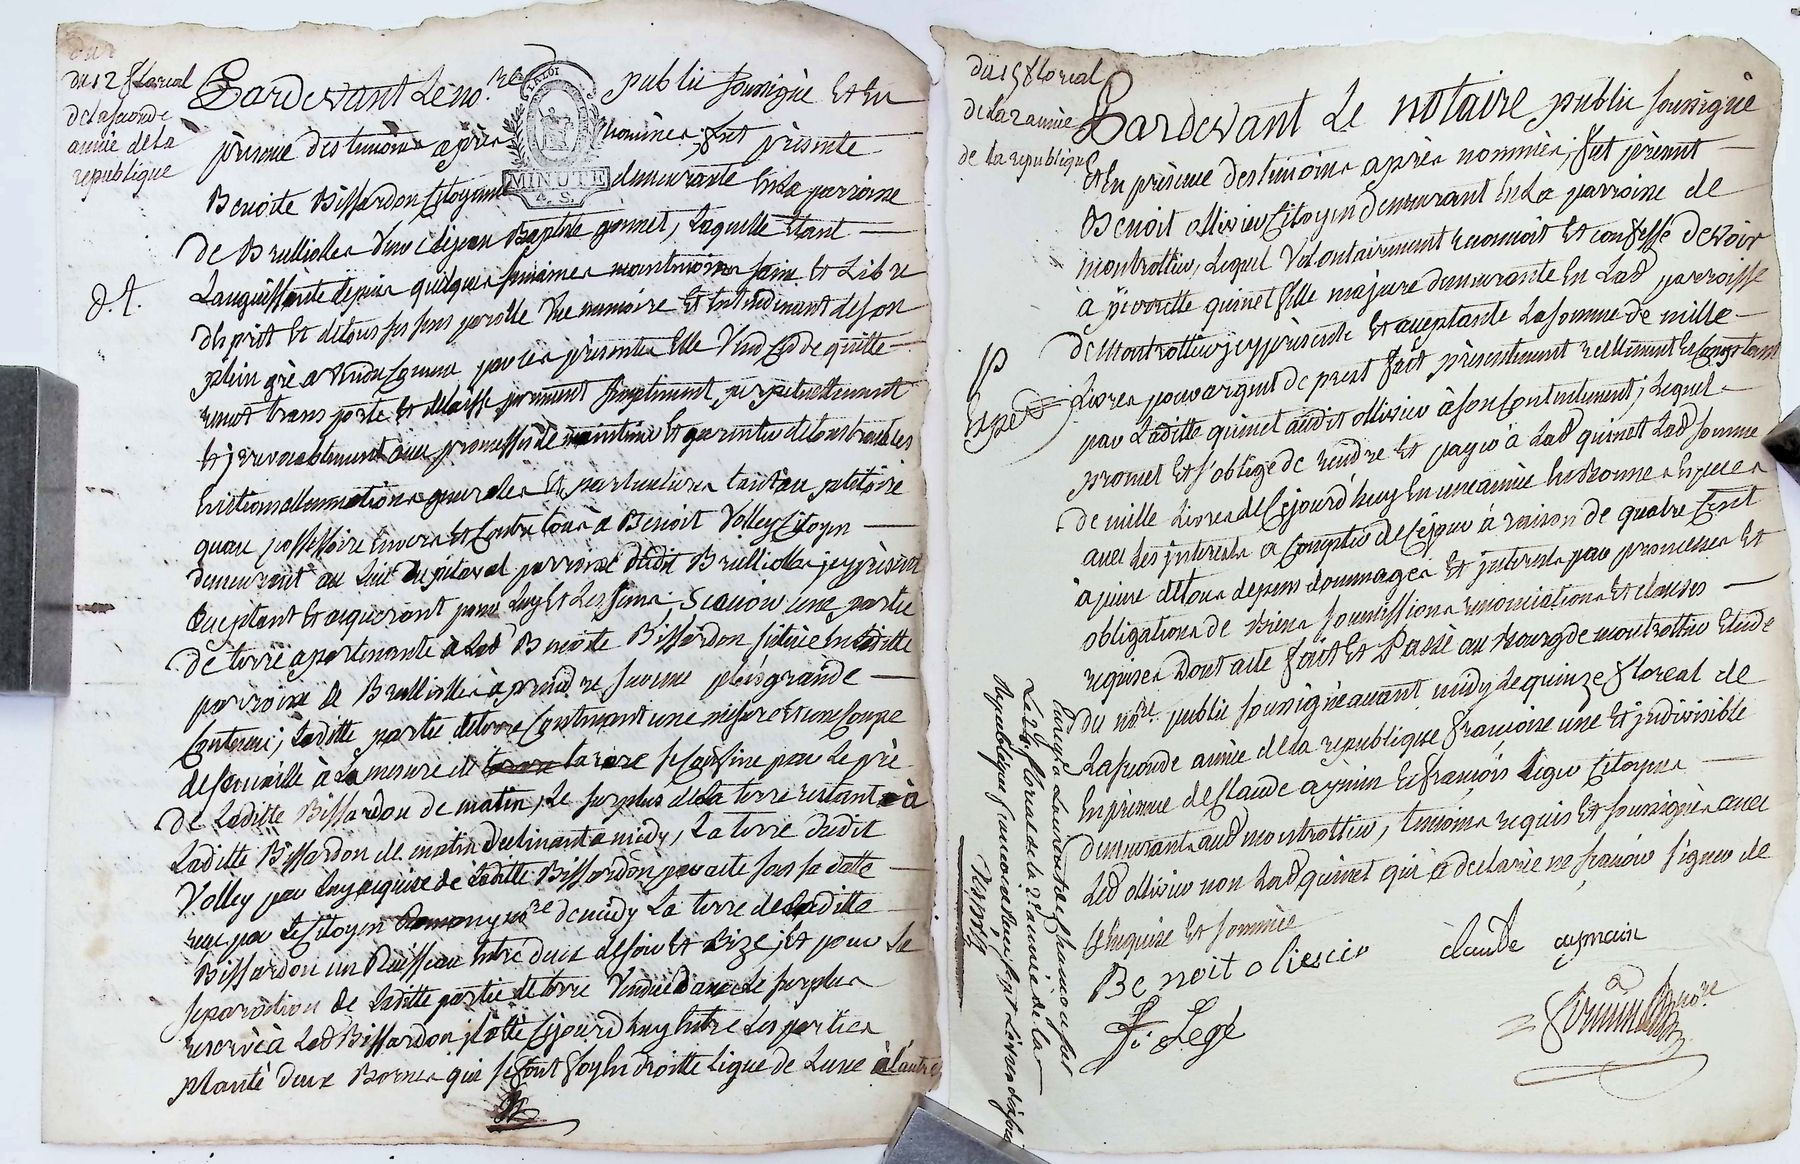 du 12 floreal
de la seconde
année de la
republique
d. t.
Pardevant Le no.re public soussigné Et En
LA LOI
MINUTE
4. S.
présence des temoins après nommés, fut présente
Benoite Bissardon Citoyenne demeurante En La parroisse
de Brullioles veuve de jean Baptiste gonnet, Laquelle Etant
Languissante depuis quelques semaines neantmoins saine Et Libre
d'Esprit Et de tous ses sens parolle vue memoire Et Entendement de son
plein gré a vendu comme par ces présentes Elle vend cede quitte
remet transporte Et delaisse purement simplement, perpetuellement
Et jrrevocablement avec promesse de maintenir Et garentir de tous troubles
Evictions generales Et particulieres tant au petitoire
quau possessoire Envers Et Contre tous a Benoit Volley Citoyen
demeurant au Lieu du pitaval parroisse dudit Brullioles jcy présent
acceptant Et acquerant pour Luy Et Les siens, Scavoir une partie
de terre apartenante a Lad Benoite Bissardon située En Ladite
parroisse de Brullioles a prendre sur une plus grande
Contenue, Laditte partie de terre Contenant une mesure Et une Coupe
de semaille à La mesure de tarare se Confine par Le pré
de Laditte Bissardon de matin, Le surplus de La terre restant à
Laditte Bissardon de matin declinant a midy, La terre dudit
Volley par Luy aquise de Laditte Bissardon par acte sous sa datte
reçu par Le Citoyen no.re de midy La terre de Laditte
Bissardon un Ruisseau Entre deux de soir Et Bize, Et pour La
separation de Laditte partie de terre Vendüe D'avec Le surplus
reservé à Lad Bissardon, a Été Cejourd'huy Entre Les parties
planté deux Bornes qui se font foy En droitte Ligne de Lune à l'autre
du 15 floreal
de La 2 année
de la republique
Expéd
Pardevant Le notaire public soussigné
Et En présence des temoins après nommés, fut présent
Benoit ollivier Citoyen demeurant En La parroisse de
montrottier, Lequel Volontairement reconnoit Et confesse devoir
a pierrette quinet fille majeure demeurante En Lad parroisse
de Montrottier jcy présente Et acceptante La somme de mille
Livres pour argent de prest fait présentement reellement Et Comptant
par Laditte quinet audit ollivier à son Contentement; Lequel
promet Et s'oblige de rendre Et payer à Lad quinet Lad somme
de mille Livres de Cejourd'huy En une année En Bonnes Especes
avec Les jnterests a Compter de Cejour à raison de quatre Cent
à peine de tous depens dommages Et jnterests par promesses Et
obligations de Biens soumissions renonciations Et clauses
requises Dont acte fait Et Passé au Bourg de montrottier Etude
du no.re public soussigné avant midy Le quinze floreal de
La seconde année de La republique françoise une Et jndivisible
En présence de Claude aymain Et françois Leger Citoyens
demeurants aud montrottier, temoins requis Et soussignés avec
Led ollivier non Lad quinet qui a declarée ne scavoir signer de
Ce Enquise Et sommée
Benoit olievier
claude aymain
f. Legé
no.re
Enregistré
La 24 floreal de la 2e année de la
Republique francoise